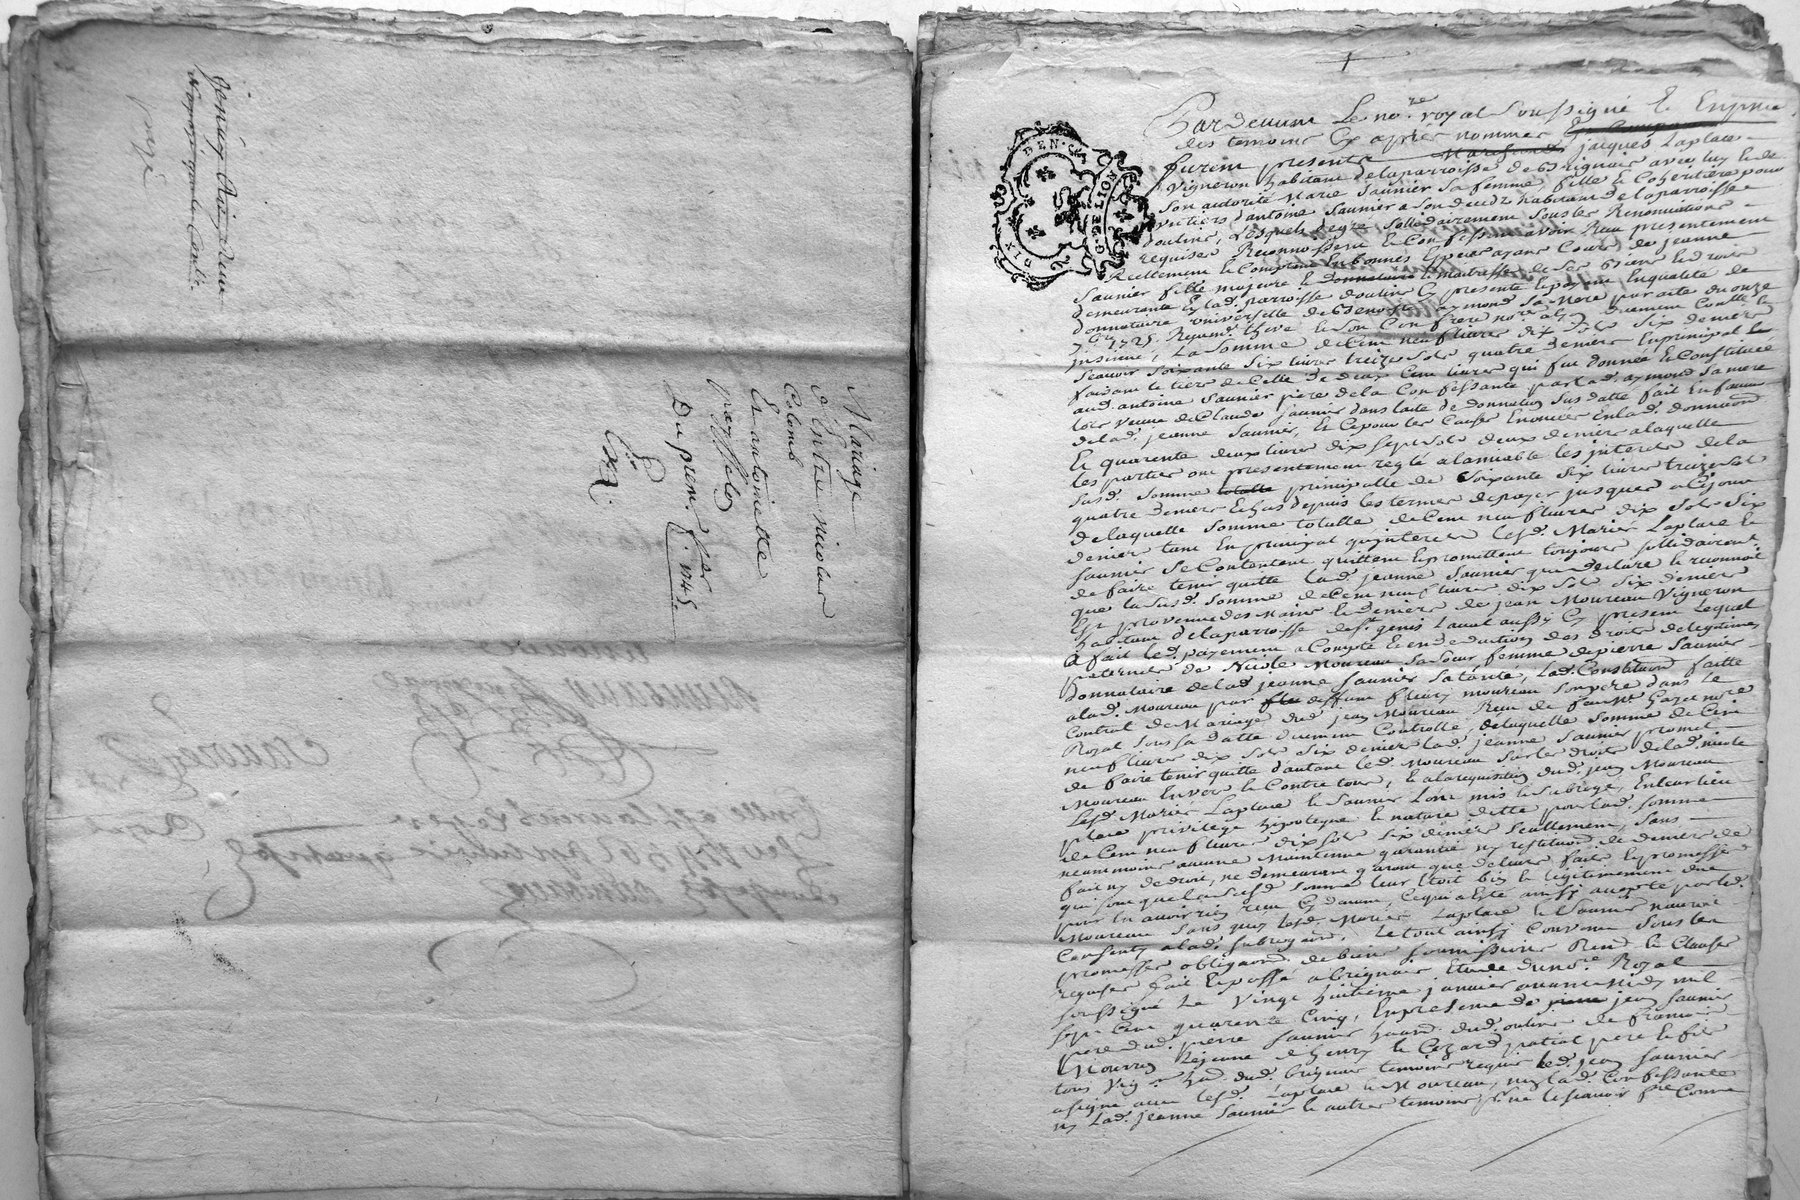 Mariage
d'Entre nicolas
Colomb
Et antoinette
Du prem.er 1745
DIX DEN.
G. DE LION
Pardevant Le no.re royal soussigné Et En présence
des temoins Cy après nommés
furent presents jacques Laplace
Vigneron habitant de la parroisse de Brignais avec luy et de
son autorité Marie Saunier sa femme, fille et Cohéritière pour
un tiers d'antoine Saunier a son deceds habitant de la parroisse
d'oulins, Lesquels de gré sollidairement sous les Renonciations
requises Reconnoissent et Confessent avoir Reçu presentement
Reellement et Comptant En bonnes Especes ayant Cours de jeanne
Saunier fille majeure et maitresse de ses Biens et droits
demeurante En lad. parroisse d'oulins Cy presente et En qualité de
donnataire universelle de Benoite aymond sa mere par acte du onze
1725. Reçu et son Confrere no.re duement Contt. et
insinué, La somme de Cent neuf livres dix sols six deniers
scavoir soixante six livres treize sols quatre deniers En principal et
faisant le tiers de Celle de deux Cent livres qui fut donnée et Constituée
aud. antoine Saunier père de la Confessante par lad. aymond sa mere
lors veuve de Claude Saunier dans l'acte de donnation sus datté fait En faveur
de lad. jeanne Saunier, et Ce pour les Causes Enoncées En lad. donnation
Et quarente deux livres dix sept sols deux deniers a laquelle
les parties ont presentement reglé a lamiable les interets de la
susd. somme principalle de soixante six livres treize sols
quatre deniers Echus depuis les termes de payer jusques a Ce jour
de laquelle somme totalle de Cent neuf livres dix sols six
deniers tant En principal qu'interets lesd. Mariés Laplace et
Saunier se Contentent quittent Et promettent toujours sollidairem.t
de faire tenir quitte lad. jeanne Saunier qui declare et reconnoit
que la susd. somme de Cent neuf livres dix sols six deniers
Est provenue des mains et deniers de jean Moureau Vigneron
habitant de la parroisse de S.t genis Laval aussy Cy present Lequel
a fait led. payement a Compte et en deduction des droits de legitimes
paternels de Nicole Moureau sa sœur femme de pierre Saunier
donnataire de lad. jeanne Saunier sa tante, lad. Constitution faitte
a lad. Moureau par deffunt fleury moureau son pere dans le
Contrat de Mariage dud. jean Moureau Reçu de feu M.e Gazet no.re
Royal sous sa datte duement Controllé, de laquelle somme de Cent
neuf livres dix sols six deniers lad. jeanne Saunier promet
de faire tenir quitte d'autant led. Moureau sur les droits de lad. nicole
Moureau Envers et Contre tous, Et a la requisition dud. jean Moureau
Lesd. Mariés Laplace et Saunier L'ont mis et subrogé, En leur lieu
place privilege hipoteque Et nature dette pour lad. somme
de Cent neuf livres dix sols six deniers seullement, sans
neantmoins aucune Maintenue garantie ny restitution de deniers de
fait ny de droit, ne demeurant garants que de leurs faits Et promesses
qui sont que la susd. somme leur Etoit bien et legitimement due
pour En avoir rien reçu Cy devant, Ce qui a Eté ainsy accepté par led.
Moureau sans quoy lesd. Mariés Laplace et Saunier n'auroit
Consenty a lad. subrogation, Le tout ainsy Convenu sous les
promesses obligations de biens soumissions Renon. et Clauses
requises fait Et passé a Brignais Etude dud. no.re Royal
soussigné Le Vingt huitième janvier avant midy mil
sept Cent quarente Cinq, En presence de jean Saunier
pere dud. pierre Saunier habitant dud. oulins de françois
Mourron Et patrat pere et fils
tous Vig.ons hab. dud. brignais temoins requis led. jean Saunier
a signé avec lesd. Laplace et Moureau, ny lad. Confessante
ny Lad. jeanne Saunier et autres temoins p.r ne le scavoir f.re Comme